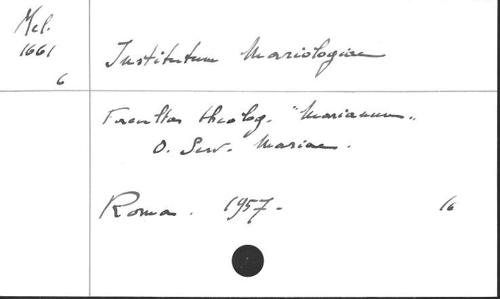 Mel.
1661
6
Institutum Mariologiae
Facultas theolog. "Marianum"
O. Serv. Mariae.
Roma. 1957- 16